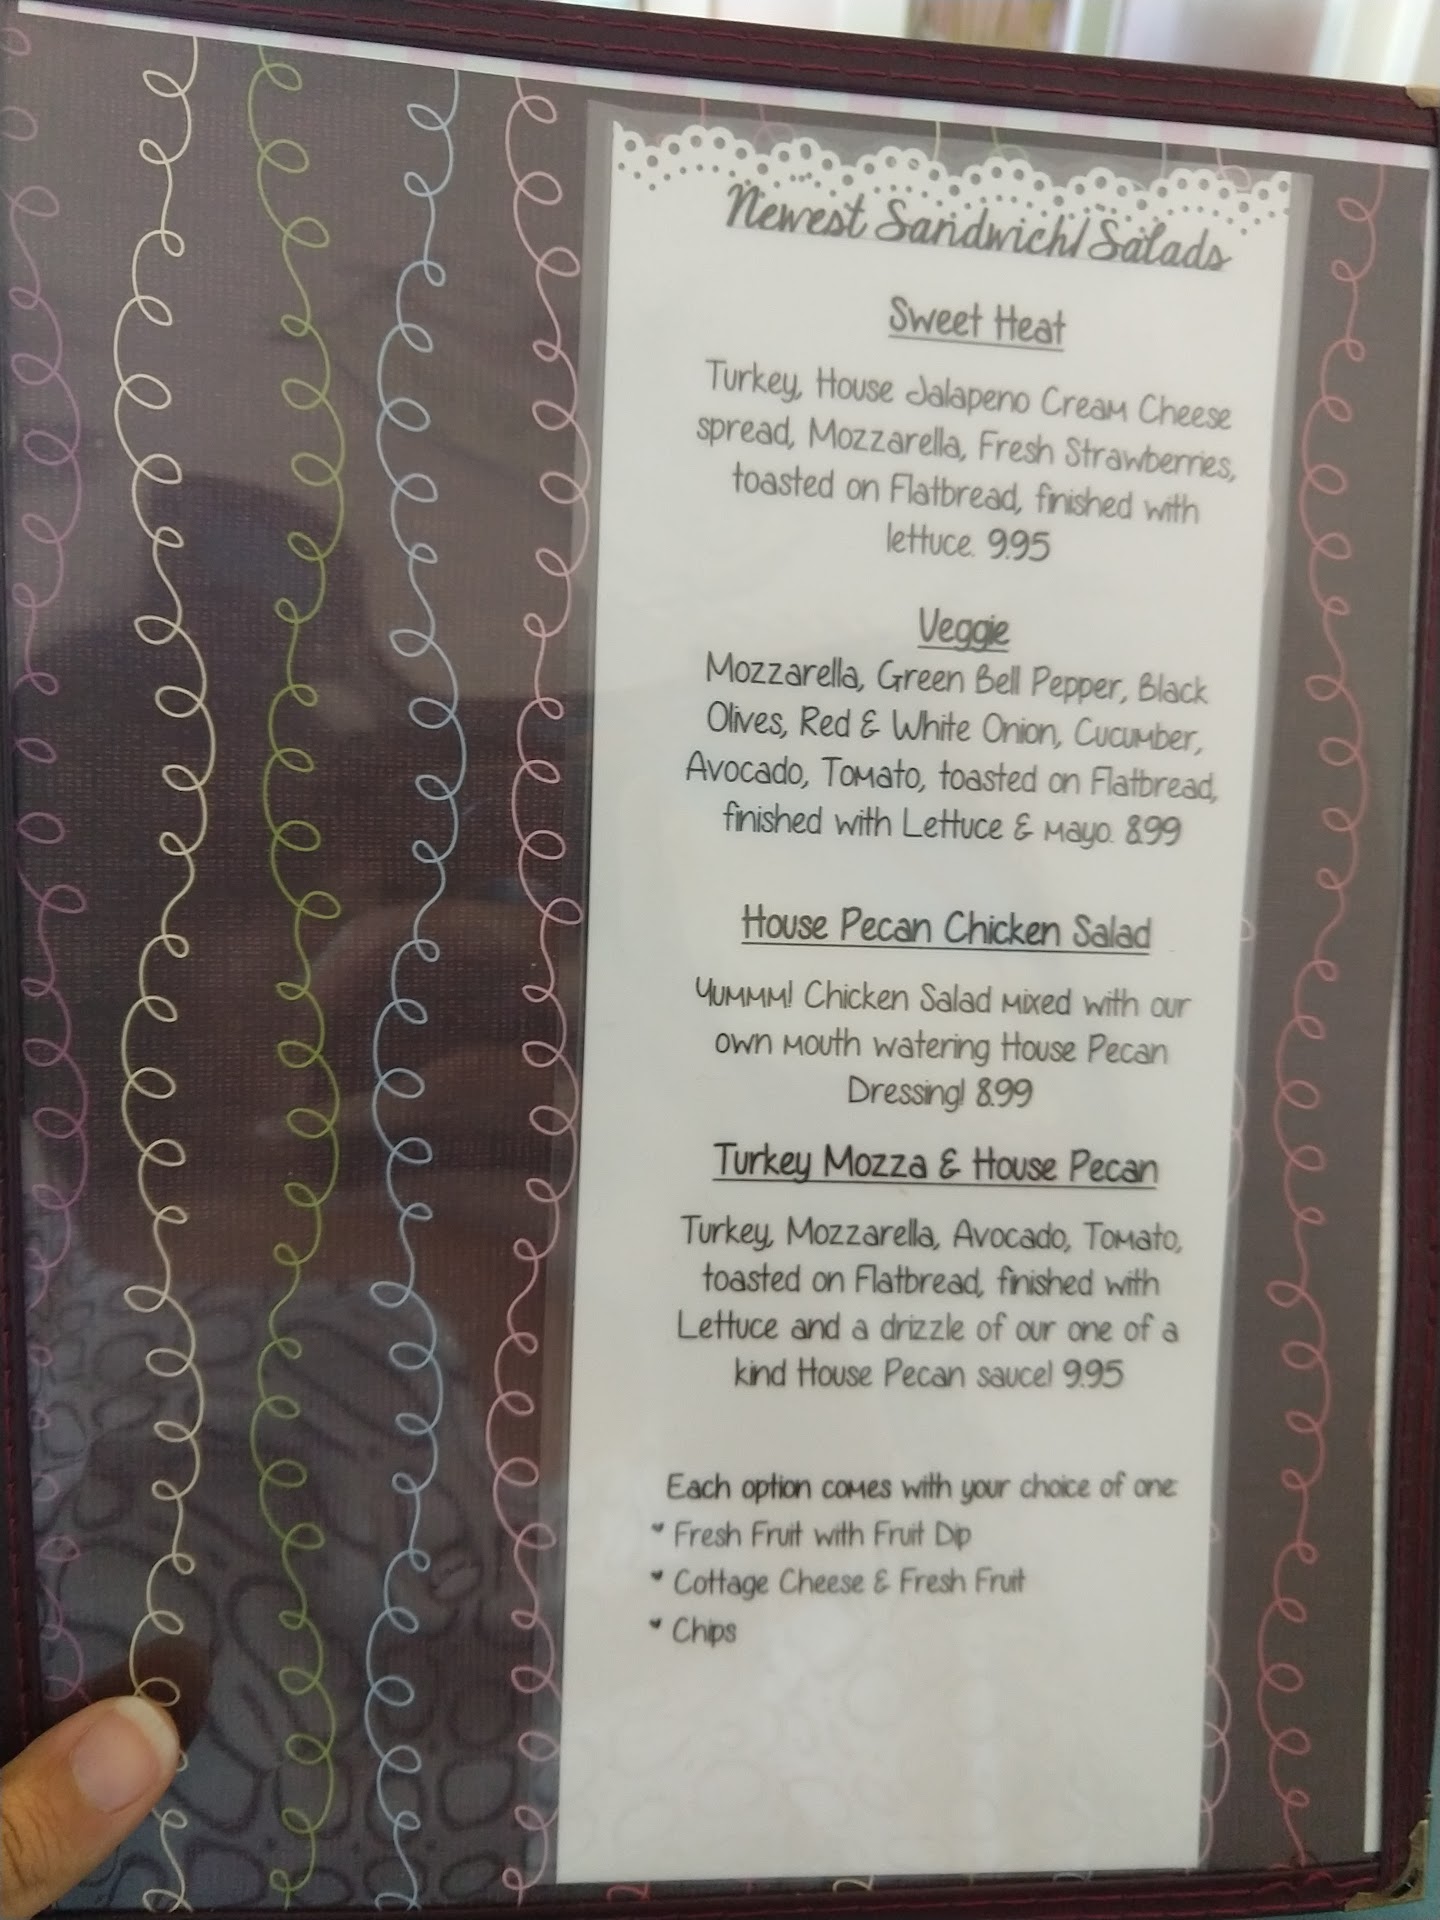 Newest Sandwich/Salads
Sweet Heat
Turkey, House Jalapeno Cream Cheese
spread, Mozzarella, Fresh Strawberries,
toasted on Flatbread, finished with
lettuce. 9.95
Veggie
Mozzarella, Green Bell Pepper, Black
Olives, Red & White Onion, Cucumber,
Avocado, Tomato, toasted on Flatbread,
finished with Lettuce & Mayo. 8.99
House Pecan Chicken Salad
Yummm! Chicken Salad mixed with our
own mouth watering House Pecan
Dressing! 8.99
Turkey Mozza & House Pecan
Turkey, Mozzarella, Avocado, Tomato,
toasted on Flatbread, finished with
Lettuce and a drizzle of our one of a
kind House Pecan sauce! 9.95
Each option comes with your choice of one:
♥ Fresh Fruit with Fruit Dip
♥ Cottage Cheese & Fresh Fruit
♥ Chips